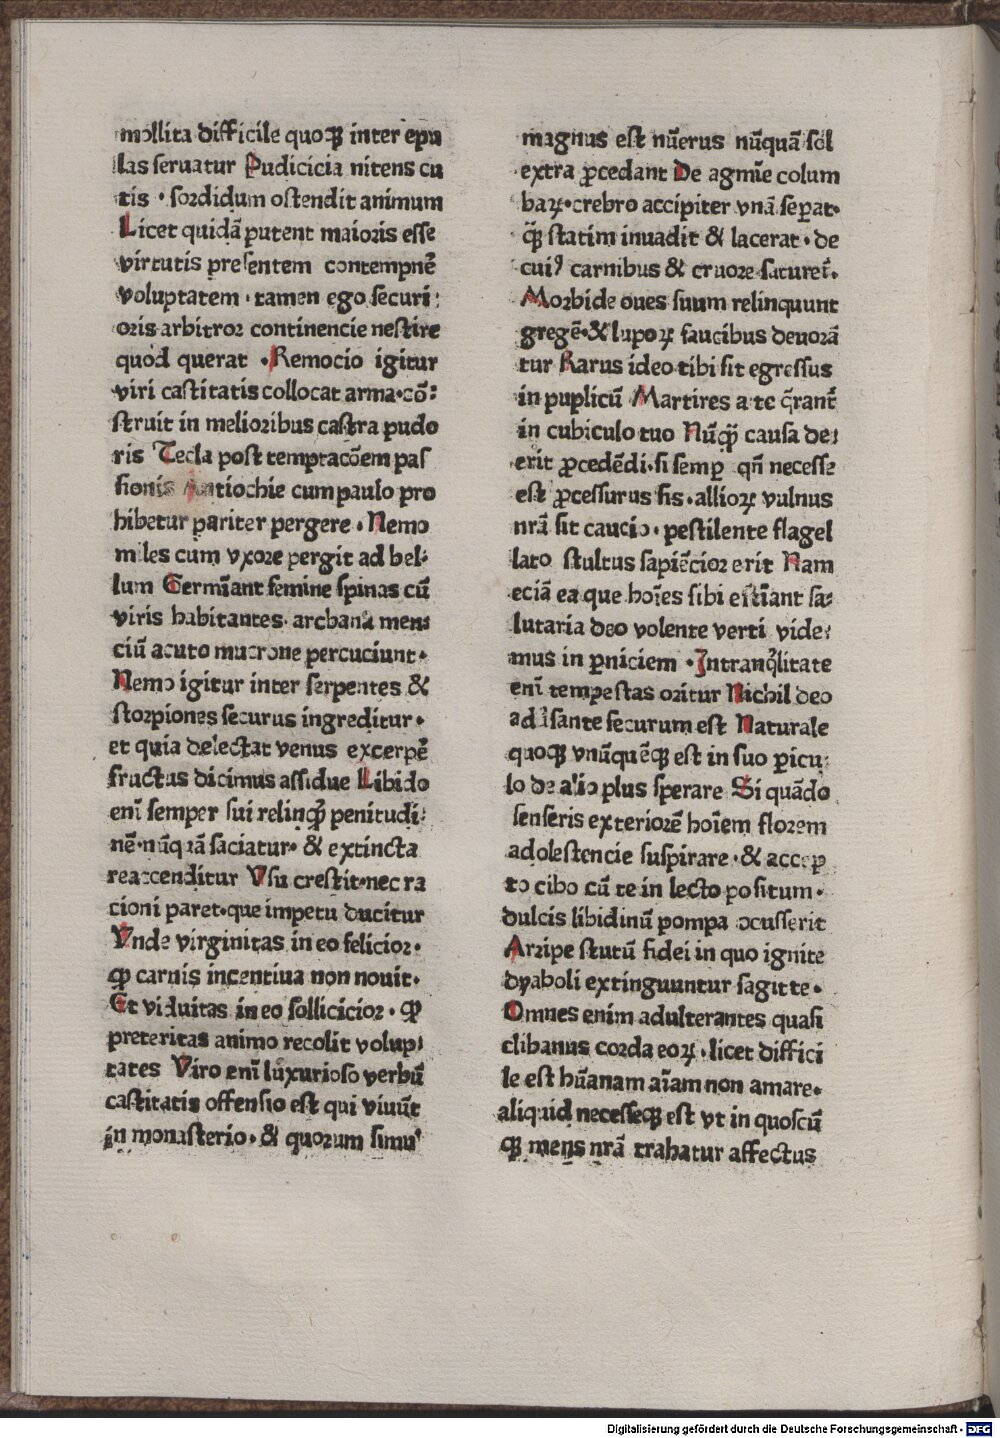 mollita difficile quoqꝫ inter epu
las seruatur Pudicicia nitens cu
tis · sordidum ostendit animum
Licet quidā putent maioris esse
virtutis presentem contempnē
voluptatem · tamen ego securi
oris arbitror continencie nescire
quod querat · Remocio igitur
viri castitatis collocat arma · cō
struit in melioribus castra pudo
ris Tecla post temptacōem pas
sionis Antiochie cum paulo pro
hibetur pariter pergere · Nemo
miles cum vxore pergit ad bel
lum Germīant femine spinas cū
viris habitantes · archana men
ciū acuto mucrone percuciunt ·
Nemo igitur inter serpentes &
storpiones securus ingreditur ·
et quia delectat venus excerpē
fructus dicimus assidue Libido
enī semper sui relinqꝫ penitudi
nē · nūquā saciatur · & extincta
reaccenditur Vsu crestit · nec ra
cioni paret · que impetu ducitur
Vnde virginitas in eo felicior ·
qꝫ carnis incentiua non nouit ·
Et viduitas in eo sollicicior · qꝫ
preteritas animo recolit volup
tates Viro enī luxurioso verbū
castitatis offensio est qui viuūt
in monasterio · & quorum simul
magnus est nūerus nūquā sol
extra ꝓcedant De agmīe colum
baꝝ · crebro accipiter vnā seꝑat ·
qꝫ statim inuadit & lacerat · de
cuiꝰ carnibus & cruore saturet̄ ·
Morbide oues suum relinquunt
gregē · & lupoꝝ faucibus deuorā
tur Rarus ideo tibi sit egressus
in puplicū Martires a te q̄rant̄
in cubiculo tuo Nūqꝫ causa de
erit ꝓcedēdi · si semꝑ qn̄ necesse
est ꝓcessurus sis · allioꝝ vulnus
nrā sit caucio · pestilente flagel
lato stultus sapiēcior erit Nam
eciā ea que hoīes sibi estīant sa
lutaria deo volente verti vide
mus in ꝑniciem · Intranq̄litate
enī tempestas oritur Nichil deo
aduersante securum est Naturale
quoqꝫ vnūquēqꝫ est in suo ꝑicu
lo de alio plus sperare Si quādo
senseris exteriorē hoīem florem
adolestencie suspirare · & accep
to cibo cū te in lecto positum ·
dulcis libidinū pompa ocusserit
Arripe stutū fidei in quo ignite
dyaboli extinguuntur sagitte ·
Omnes enim adulterantes quasi
clibanus corda eoꝝ · licet diffici
le est hūanam aīam non amare ·
aliquid necesseqꝫ est vt in quoscū
qꝫ mens nrā trahatur affectus
Digitalisierung gefördert durch die Deutsche Forschungsgemeinschaft · DFG